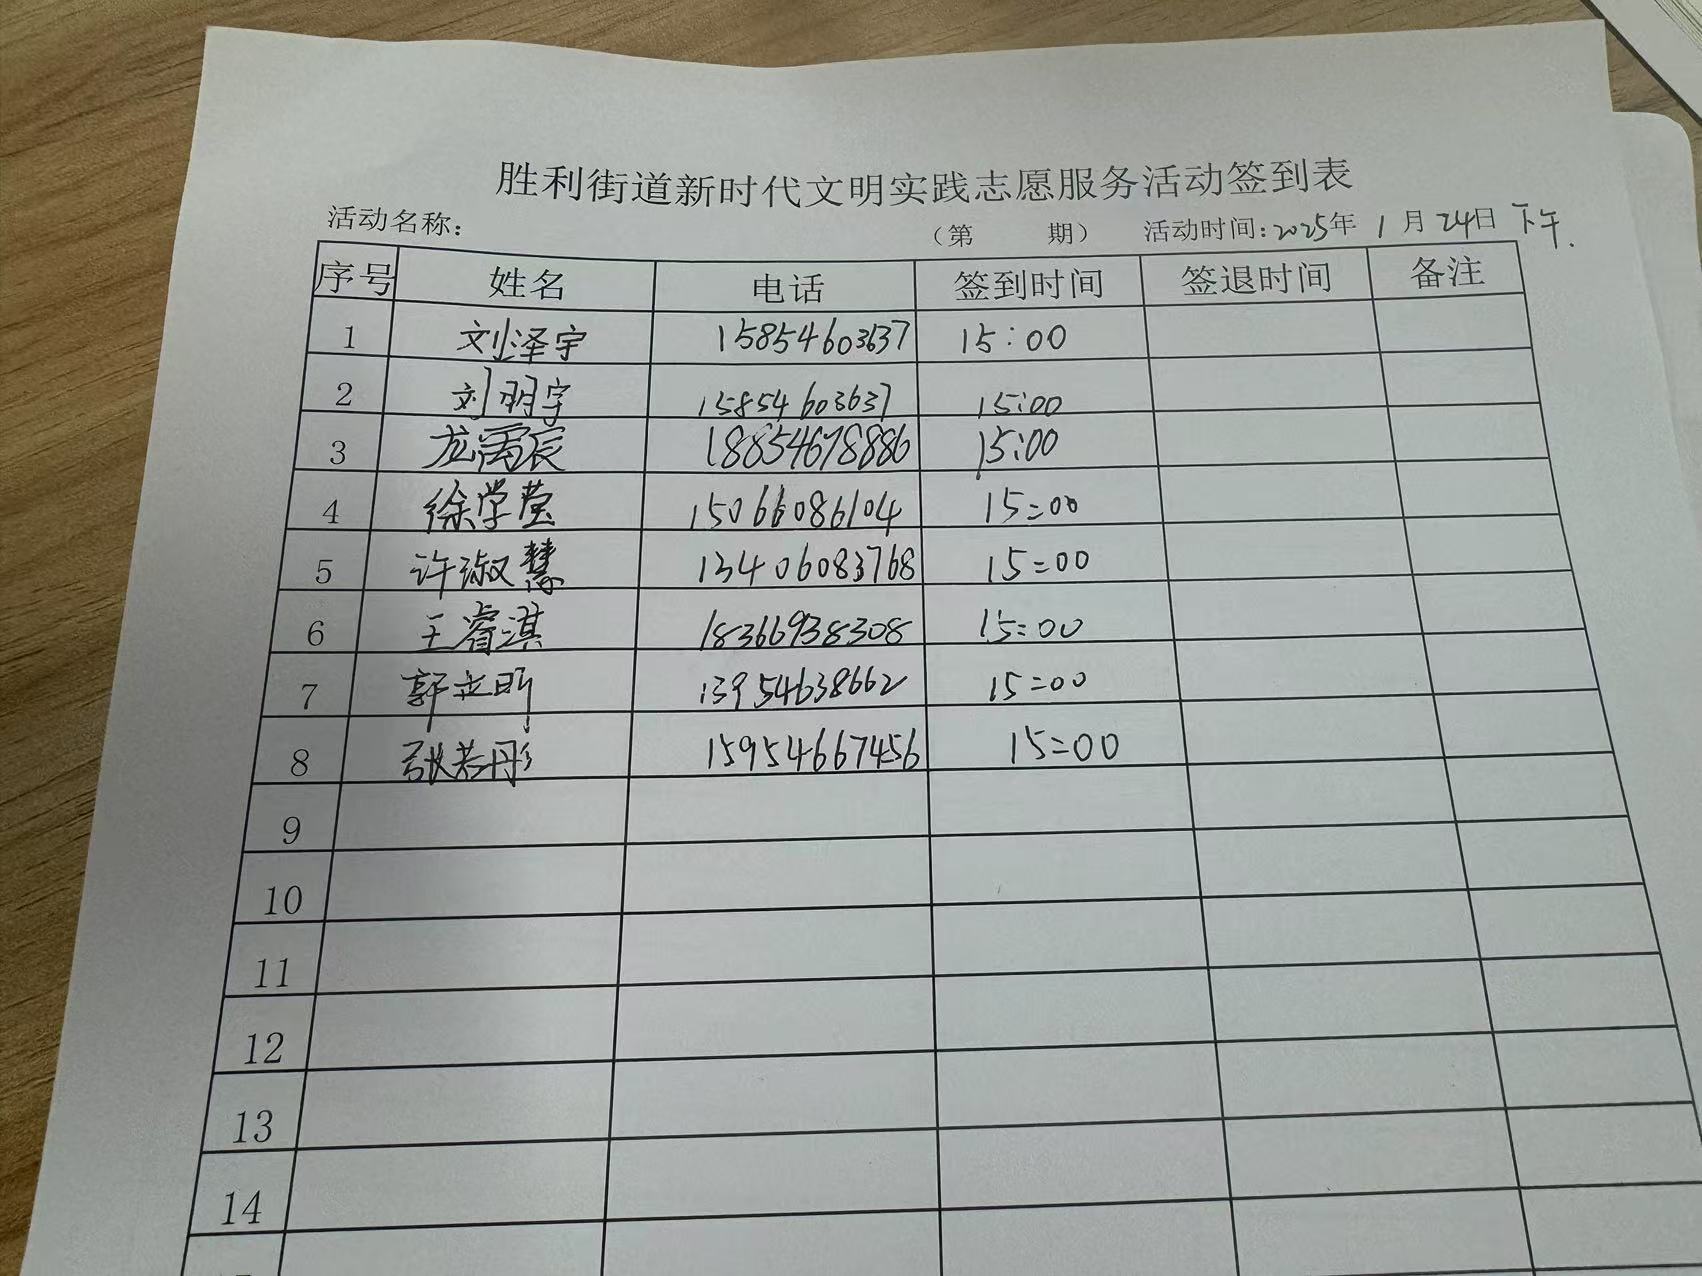 胜利街道新时代文明实践志愿服务活动签到表
活动名称： （第 期） 活动时间：2025年 1月 24日 下午.
序号 姓名 电话 签到时间 签退时间 备注
1 刘泽宇 15854603637 15:00
2 刘明宇 15854603637 15:00
3 龙禹辰 18854678886 15:00
4 徐学莹 15066086104 15:00
5 许淑慧 13406083768 15:00
6 王睿淇 18366938308 15:00
7 郭立昕 13954638662 15:00
8 张若彤 15954667456 15:00
9
10
11
12
13
14